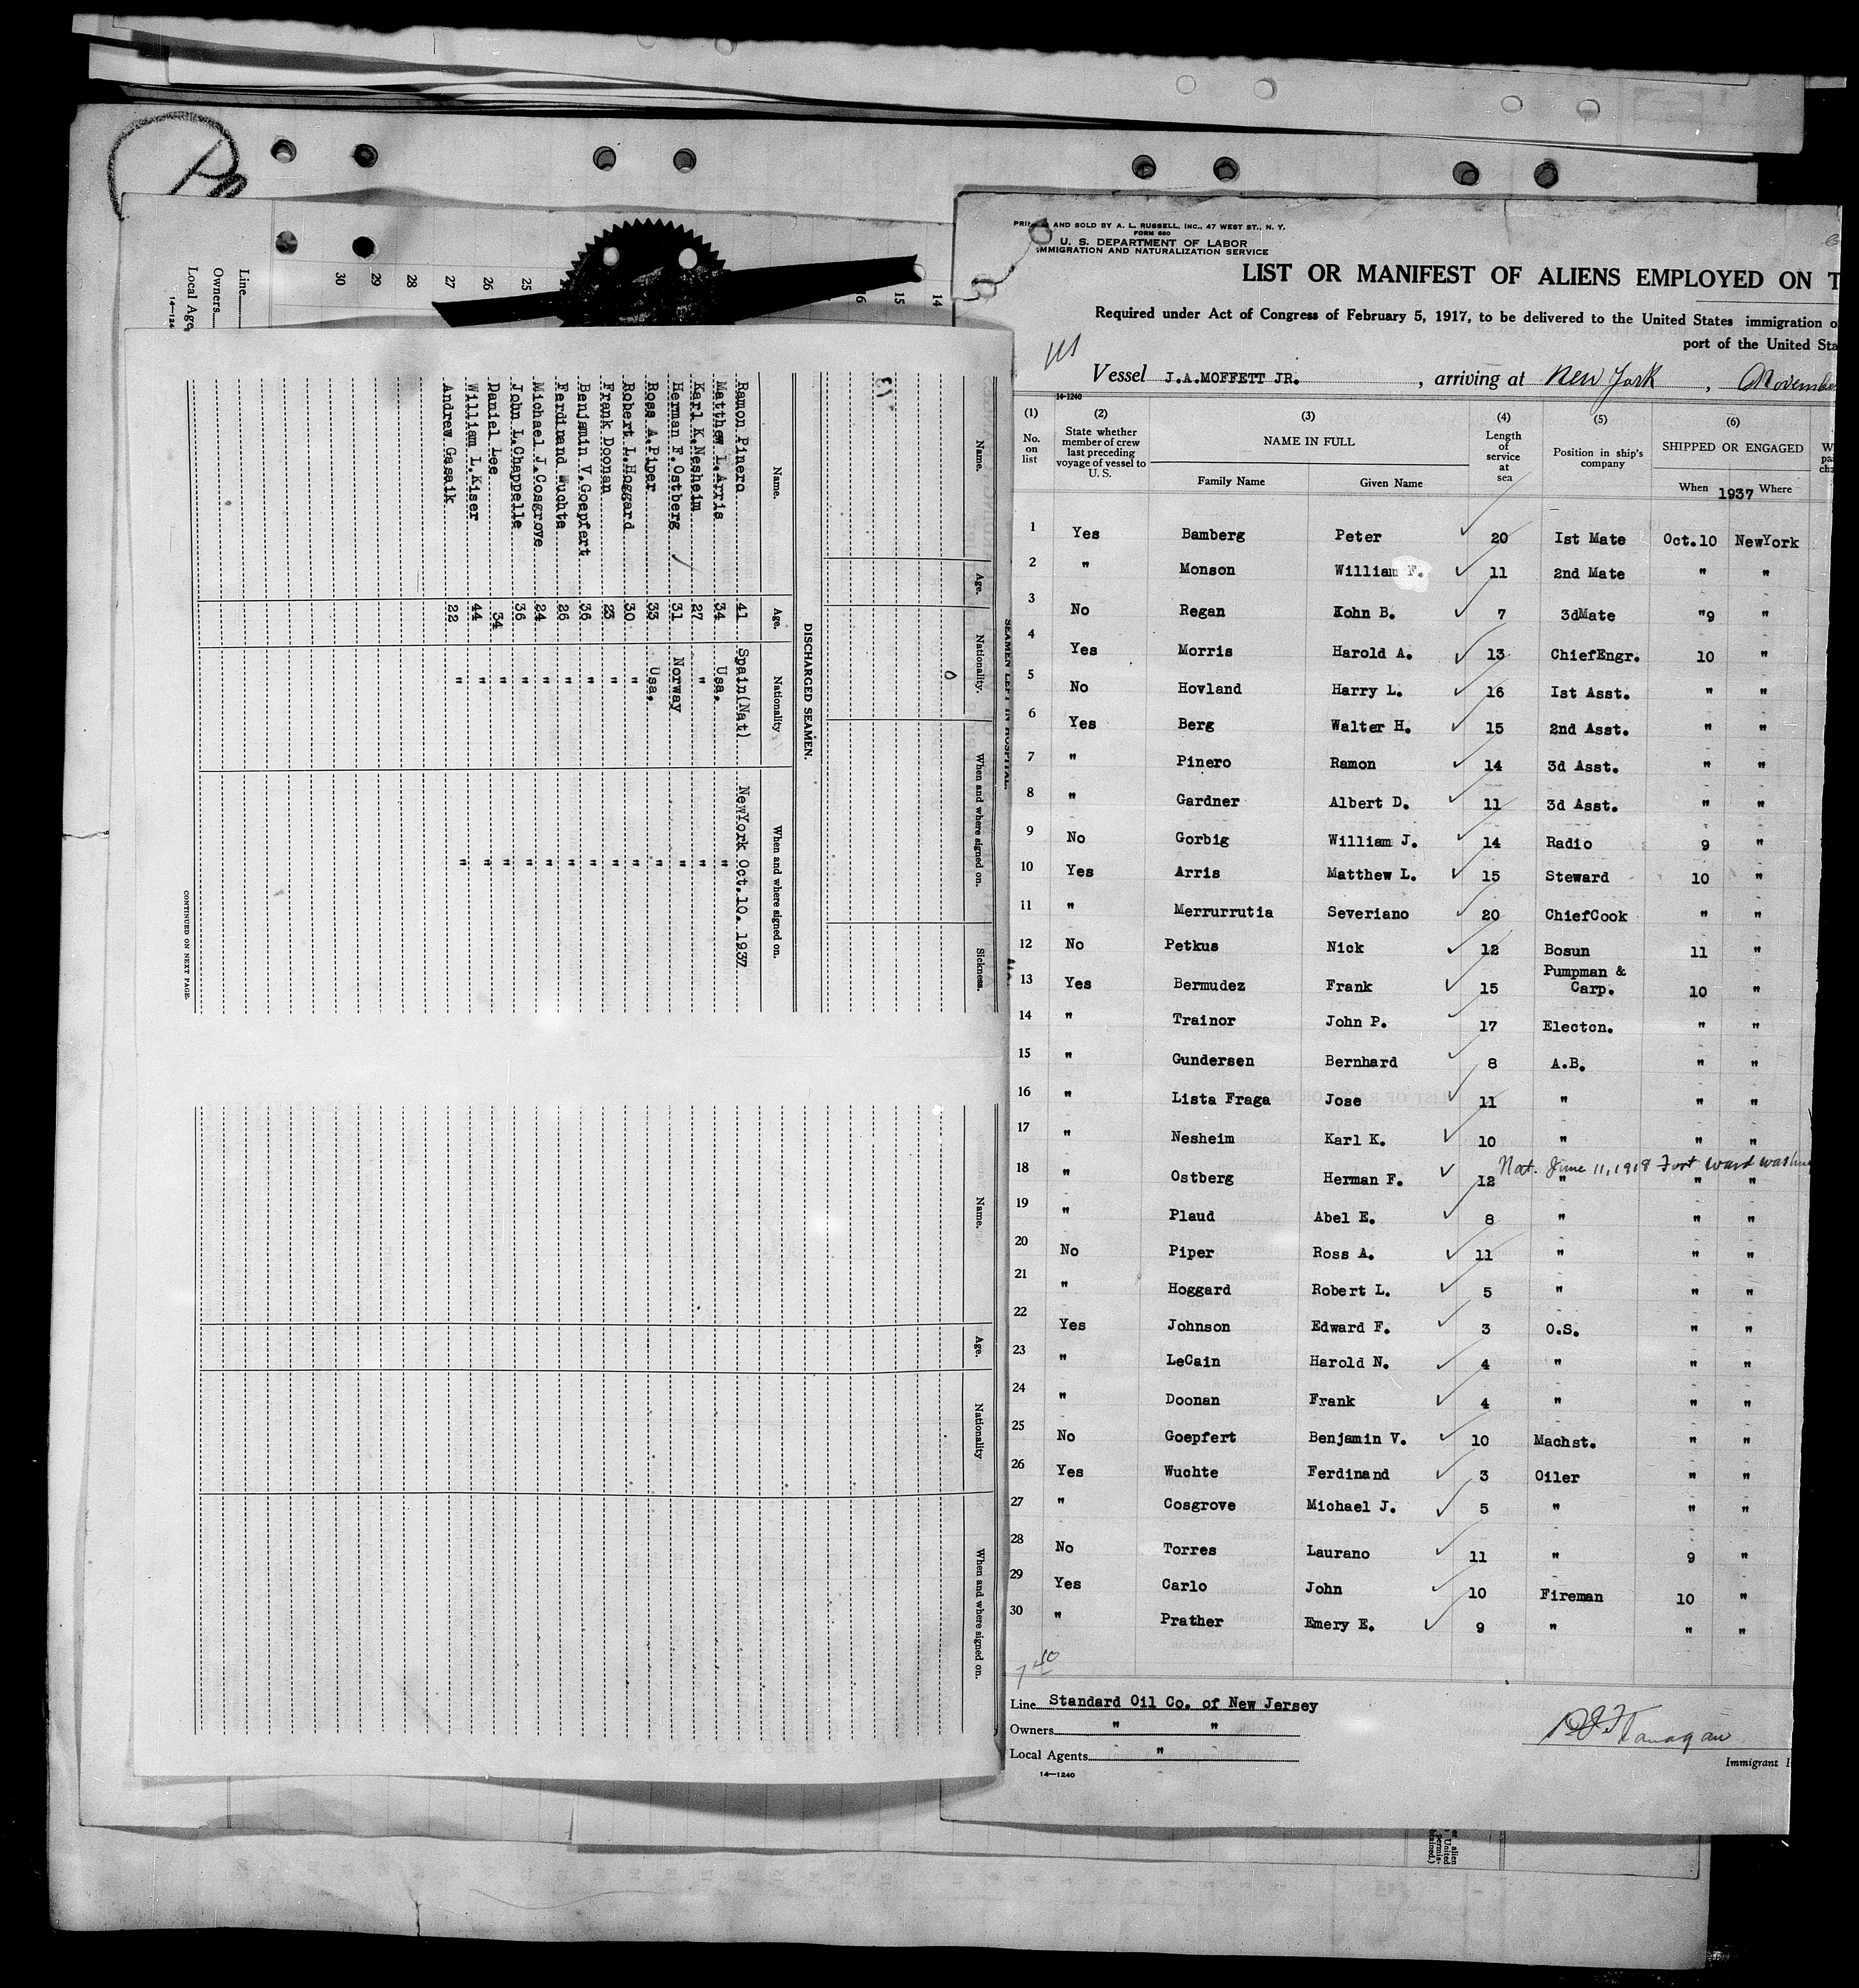 Line
Owners
Local Age
14—124
30
29
28
27
26
25
16
15
14
SEAMEN LEFT IN HOSPITAL.
Name. Age. Nationality. When and where signed on. Sickness.
0
DISCHARGED SEAMEN.
Name. Age. Nationality When and where signed on.
Ramon Pinero 41 Spain(Nat) NewYork Oct.10. 1937
Matthew L.Arris 34 Usa. "
Karl K.Nesheim 27 " "
Herman F.Ostberg 31 Norway "
Ross A.Piper 33 Usa. "
Robert L.Hoggard 30 " "
Frank Doonan 23 " "
Benjamin V.Goepfert 36 " "
Ferdinand Wuchte 26 " "
Michael J.Cosgrove 24 " "
John L.Chappelle 36 " "
Daniel Lee 34 " "
William L.Kiser 44 " "
Andrew Gasaik 22 " "
CONTINUED ON NEXT PAGE.
Name. Age. Nationality When and where signed on.
PRINTED AND SOLD BY A. L. RUSSELL, INC., 47 WEST ST., N. Y.
FORM 680
U. S. DEPARTMENT OF LABOR
IMMIGRATION AND NATURALIZATION SERVICE
LIST OR MANIFEST OF ALIENS EMPLOYED ON T
Required under Act of Congress of February 5, 1917, to be delivered to the United States immigration o
port of the United Sta
Vessel J.A.MOFFETT JR. , arriving at New York , Novembe
14-1240
(1) (2) (3) (4) (5) (6)
No. on list State whether member of crew last preceding voyage of vessel to U. S. NAME IN FULL Length of service at sea Position in ship's company SHIPPED OR ENGAGED
Family Name Given Name When 1937 Where
1 Yes Bamberg Peter 20 Ist Mate Oct.10 NewYork
2 " Monson William F. 11 2nd Mate " "
3 No Regan Kohn B. 7 3dMate "9 "
4 Yes Morris Harold A. 13 ChiefEngr. 10 "
5 No Hovland Harry L. 16 Ist Asst. " "
6 Yes Berg Walter H. 15 2nd Asst. " "
7 " Pinero Ramon 14 3d Asst. " "
8 " Gardner Albert D. 11 3d Asst. " "
9 No Gorbig William J. 14 Radio 9 "
10 Yes Arris Matthew L. 15 Steward 10 "
11 " Merrurrutia Severiano 20 ChiefCook " "
12 No Petkus Nick 12 Bosun 11 "
13 Yes Bermudez Frank 15 Pumpman & Carp. 10 "
14 " Trainor John P. 17 Electcn. " "
15 " Gundersen Bernhard 8 A.B. " "
16 " Lista Fraga Jose 11 " " "
17 " Nesheim Karl K. 10 " " "
Nat. June 11, 1918 Fort Ward Washin
18 " Ostberg Herman F. 12 " " "
19 " Plaud Abel E. 8 " " "
20 No Piper Ross A. 11 " " "
21 " Hoggard Robert L. 5 " " "
22 Yes Johnson Edward F. 3 O.S. " "
23 " LeCain Harold N. 4 " " "
24 " Doonan Frank 4 " " "
25 No Goepfert Benjamin V. 10 Machst. " "
26 Yes Wuchte Ferdinand 3 Oiler " "
27 " Cosgrove Michael J. 5 " " "
28 No Torres Laurano 11 " 9 "
29 Yes Carlo John 10 Fireman 10 "
30 " Prather Emery E. 9 " " "
Line Standard Oil Co. of New Jersey
Owners " "
Local Agents "
14—1240
Flanagan
Immigrant I